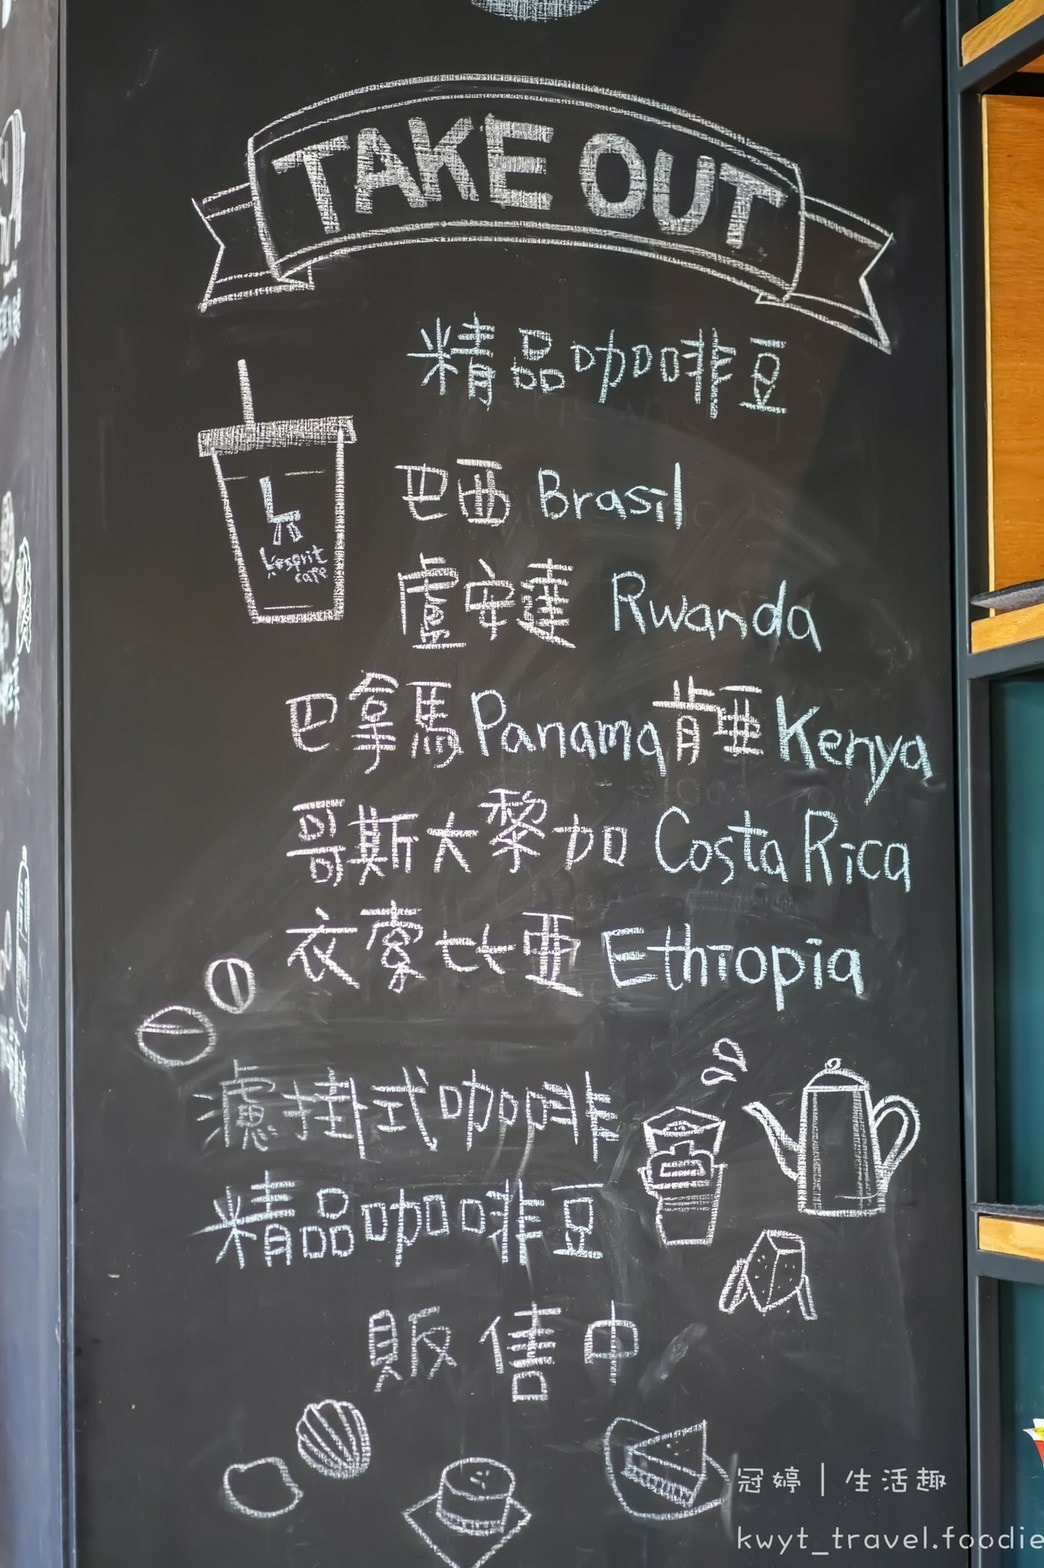 TAKE OUT
精品咖啡豆
巴西 Brasil
盧安達 Rwanda
巴拿馬 Panama 肯亞 Kenya
哥斯大黎加 Costa Rica
衣索比亞 Ethiopia
濾掛式咖啡
精品咖啡豆
販售中
冠婷 | 生活趣
kwyt_travel.foodie